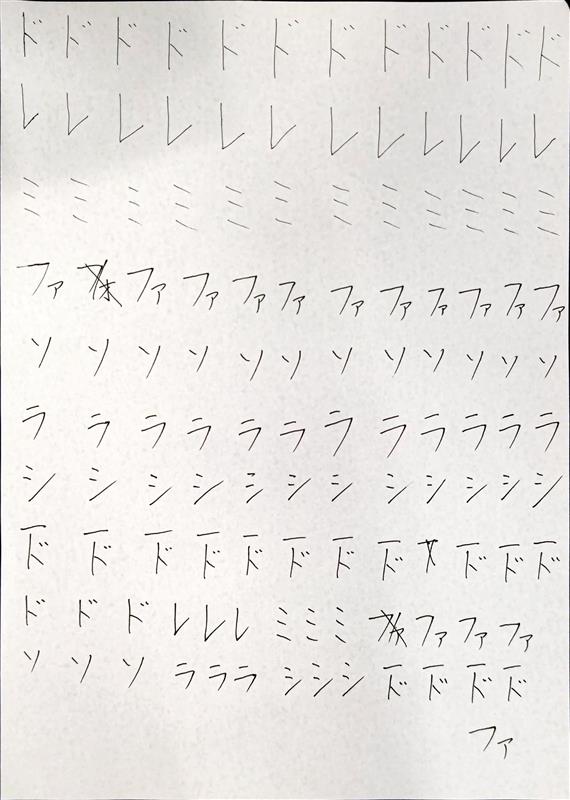 ド ド ド ド ド ド ド ド ド ド ド ド
レ レ レ レ レ レ レ レ レ レ レ レ
ミ ミ ミ ミ ミ ミ ミ ミ ミ ミ ミ ミ
ファ ファ ファ ファ ファ ファ ファ ファ ファ ファ ファ
ソ ソ ソ ソ ソ ソ ソ ソ ソ ソ ソ ソ
ラ ラ ラ ラ ラ ラ ラ ラ ラ ラ ラ ラ
シ シ シ シ シ シ シ シ シ シ シ シ
ド̅ ド̅ ド̅ ド̅ ド̅ ド̅ ド̅ ド̅ ド̅ ド̅ ド̅
ド ド ド レ レ レ ミ ミ ミ ファ ファ ファ
ソ ソ ソ ラ ラ ラ シ シ シ ド̅ ド̅ ド̅ ド̅
ファ